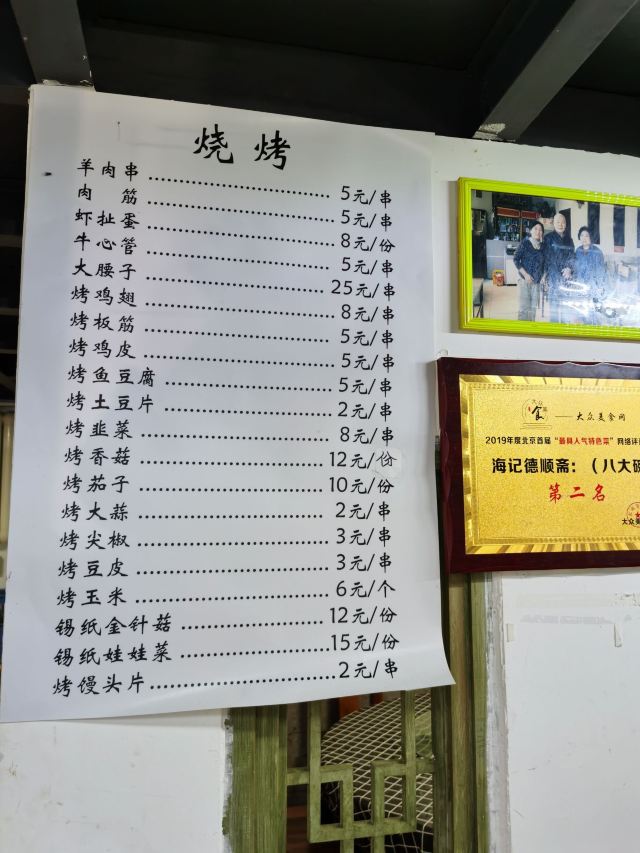 烧烤
羊肉串 5元/串
肉筋 5元/串
虾扯蛋 8元/份
牛心管 5元/串
大腰子 25元/串
烤鸡翅 8元/串
烤板筋 5元/串
烤鸡皮 5元/串
烤鱼豆腐 5元/串
烤土豆片 2元/串
烤韭菜 8元/串
烤香菇 12元/份
烤茄子 10元/份
烤大蒜 2元/串
烤尖椒 3元/串
烤豆皮 3元/串
烤玉米 6元/个
锡纸金针菇 12元/份
锡纸娃娃菜 15元/份
烤馒头片 2元/串
食 —— 大众美食网
2019年度北京首届“最具人气特色菜”网络评
海记德顺斋：（八大
第二名
大众